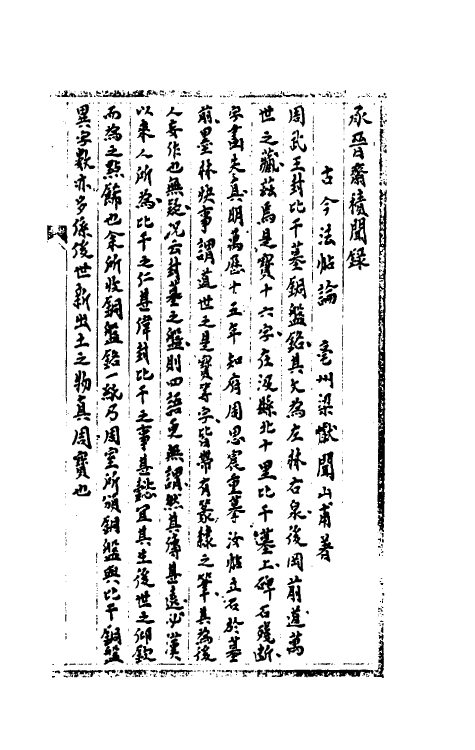 承晉齋積聞錄
古今法帖論 亳州梁巘聞山甫著
周武王封比干墓銅盤銘其文為左林右泉後岡前道萬
世之藏茲焉是寶十六字在汲縣北十里比干墓上碑石殘斷
字畫失真明萬歷十五年知府周思宸重摹汝帖立石於墓
前墨林快事謂道世之是寶等字皆帶有篆隸之筆其為後
人妄作也無疑况云封墓之盤則四語更無謂然其傳甚遠必漢
以來人所為比干之仁甚偉封比干之事甚懿宜其生後世之仰欽
而為之點飾也余所收銅盤銘一紙乃周室所頒銅盤與比干銅盤
異字數亦多係後世新出土之物真周寶也